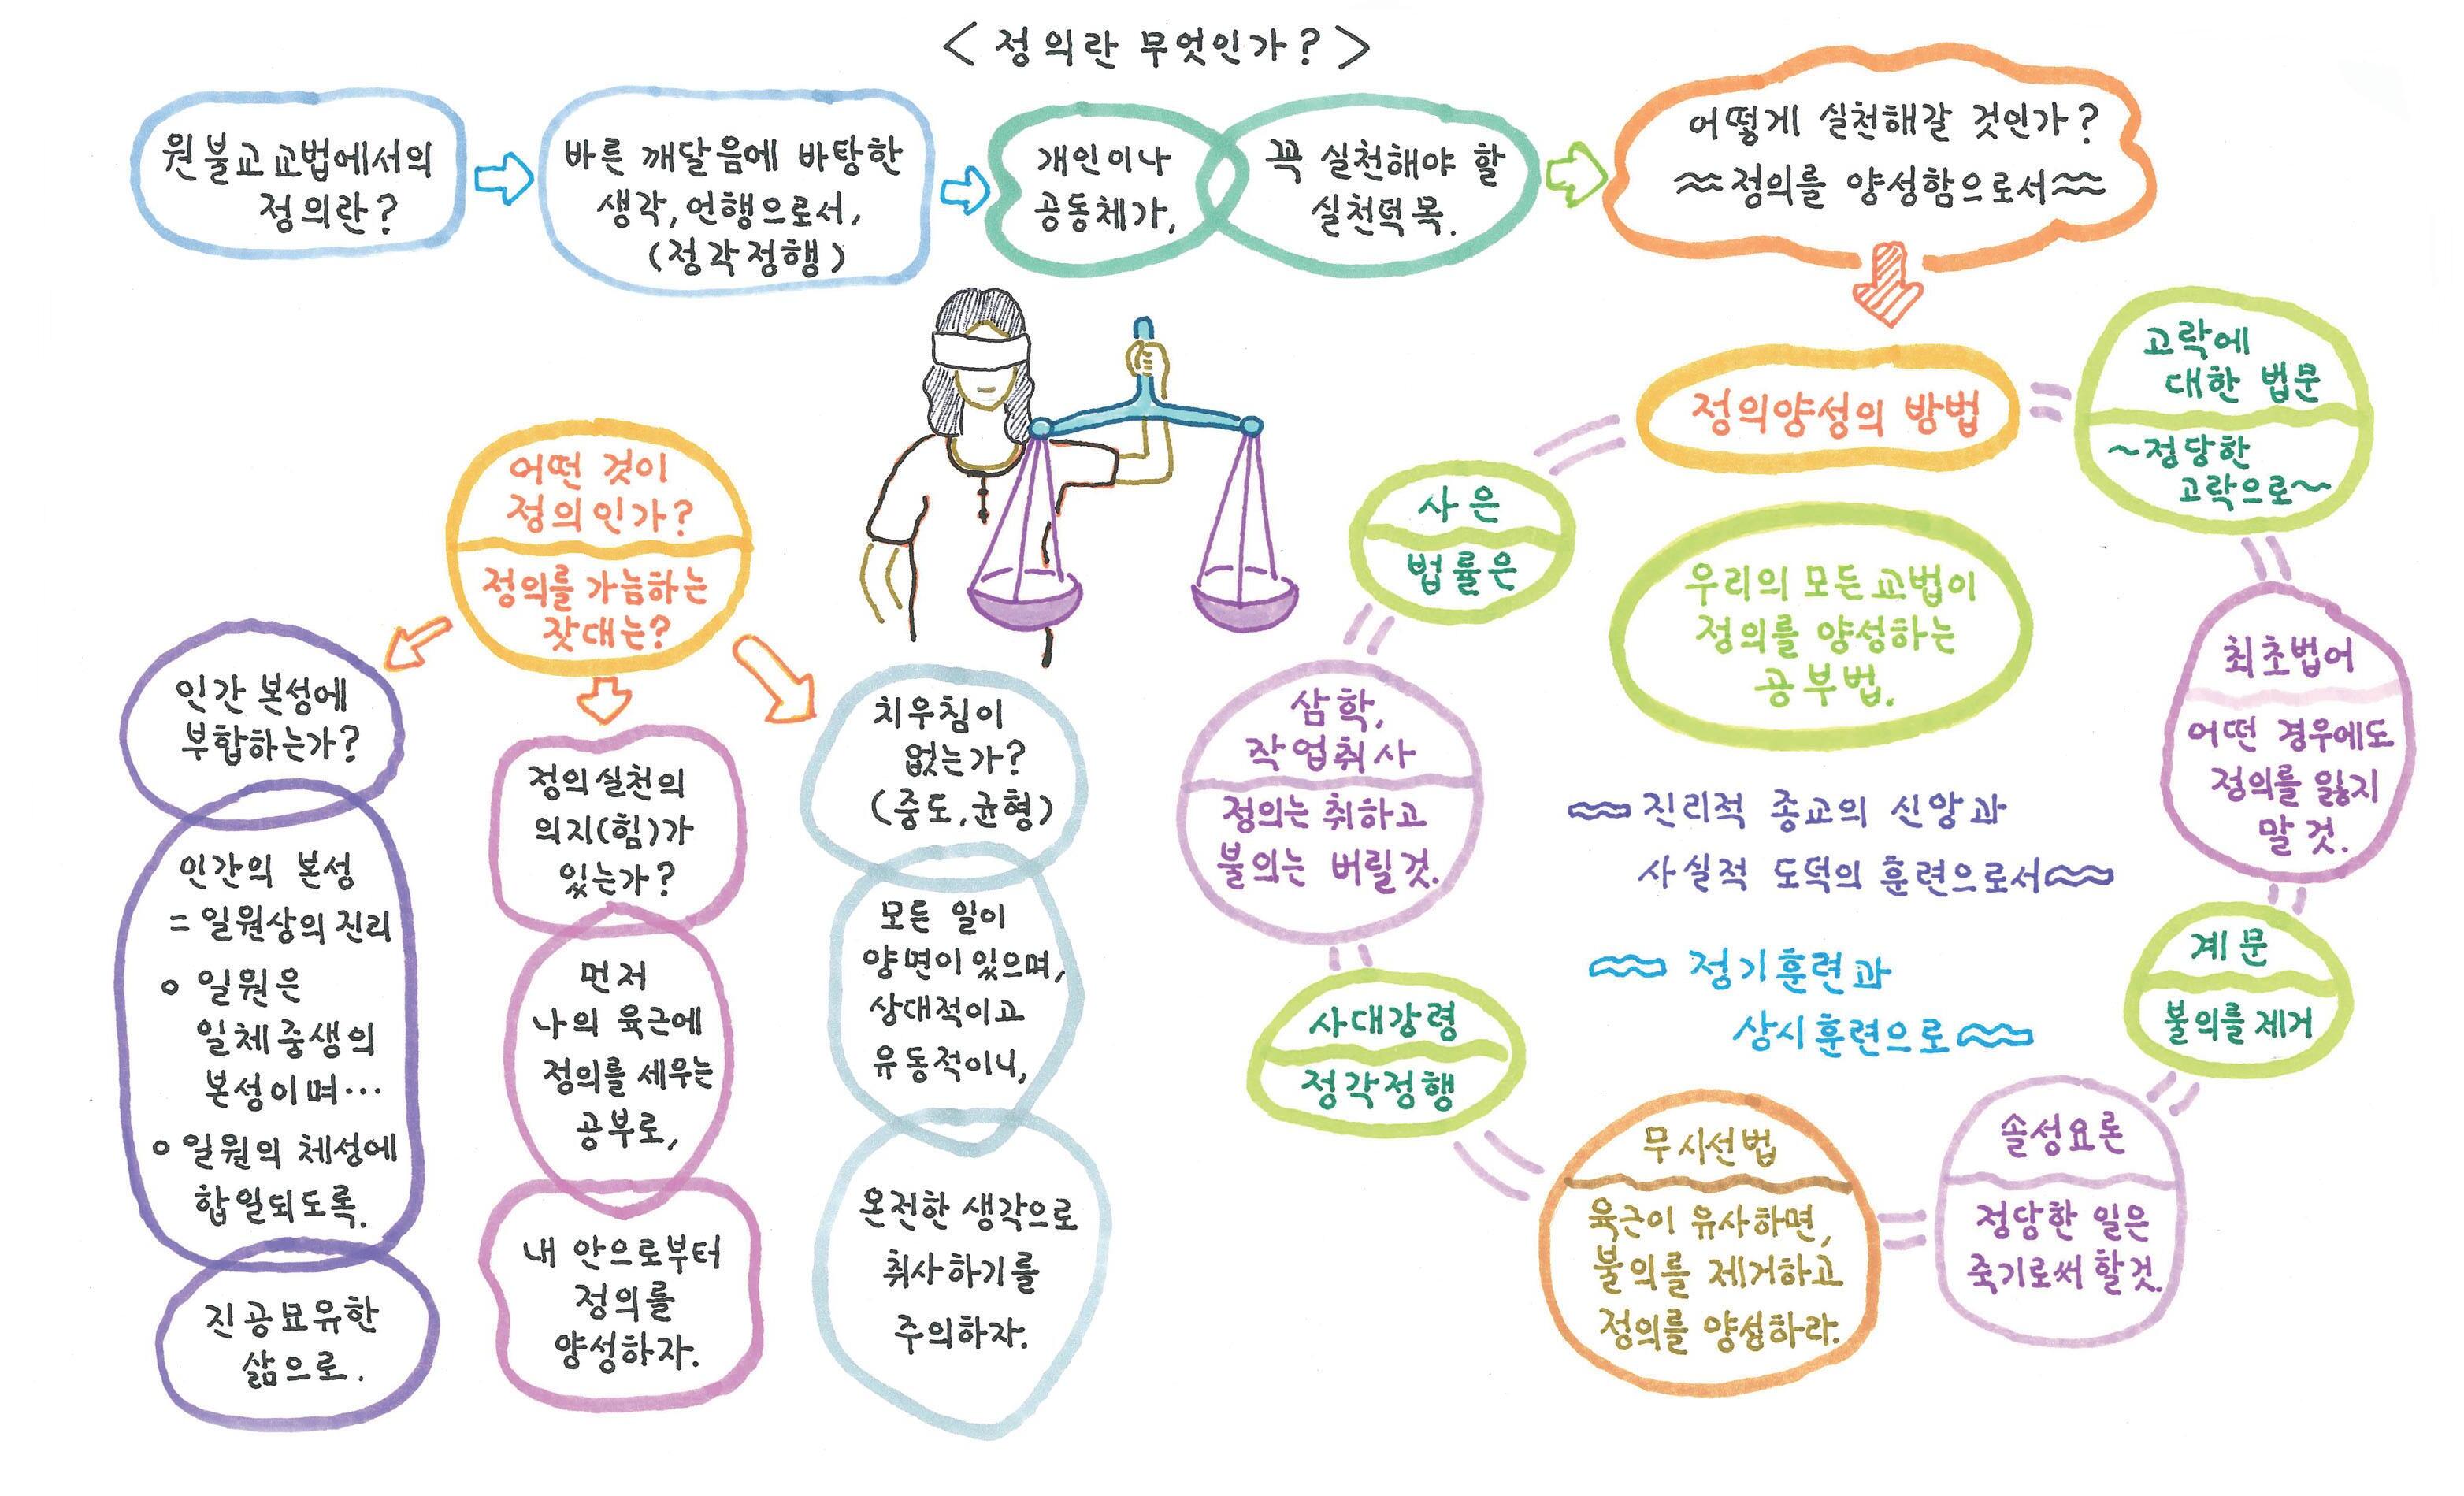 < 정의란 무엇인가? >
원불교 교법에서의
정의란?
바른 깨달음에 바탕한
생각, 언행으로서,
(정각정행)
개인이나
공동체가,
꼭 실천해야 할
실천덕목.
어떻게 실천해갈 것인가?
~정의를 양성함으로서~
어떤 것이
정의인가?
정의를 가늠하는
잣대는?
인간 본성에
부합하는가?
인간의 본성
= 일원상의 진리
o 일원은
일체중생의
본성이며…
o 일원의 체성에
합일되도록.
진공묘유한
삶으로.
정의실천의
의지(힘)가
있는가?
먼저
나의 육근에
정의를 세우는
공부로,
내 안으로부터
정의를
양성하자.
치우침이
없는가?
(중도, 균형)
모든 일이
양면이 있으며,
상대적이고
유동적이니,
온전한 생각으로
취사하기를
주의하자.
정의양성의 방법
고락에
대한 법문
~정당한
고락으로~
최초법어
어떤 경우에도
정의를 잃지
말 것.
계문
불의를 제거
솔성요론
정당한 일은
죽기로써 할것.
무시선법
육근이 유사하면,
불의를 제거하고
정의를 양성하라.
사대강령
정각정행
삼학,
작업취사
정의는 취하고
불의는 버릴것.
사은
법률은
우리의 모든 교법이
정의를 양성하는
공부법.
~진리적 종교의 신앙과
사실적 도덕의 훈련으로서~
~정기훈련과
상시훈련으로~